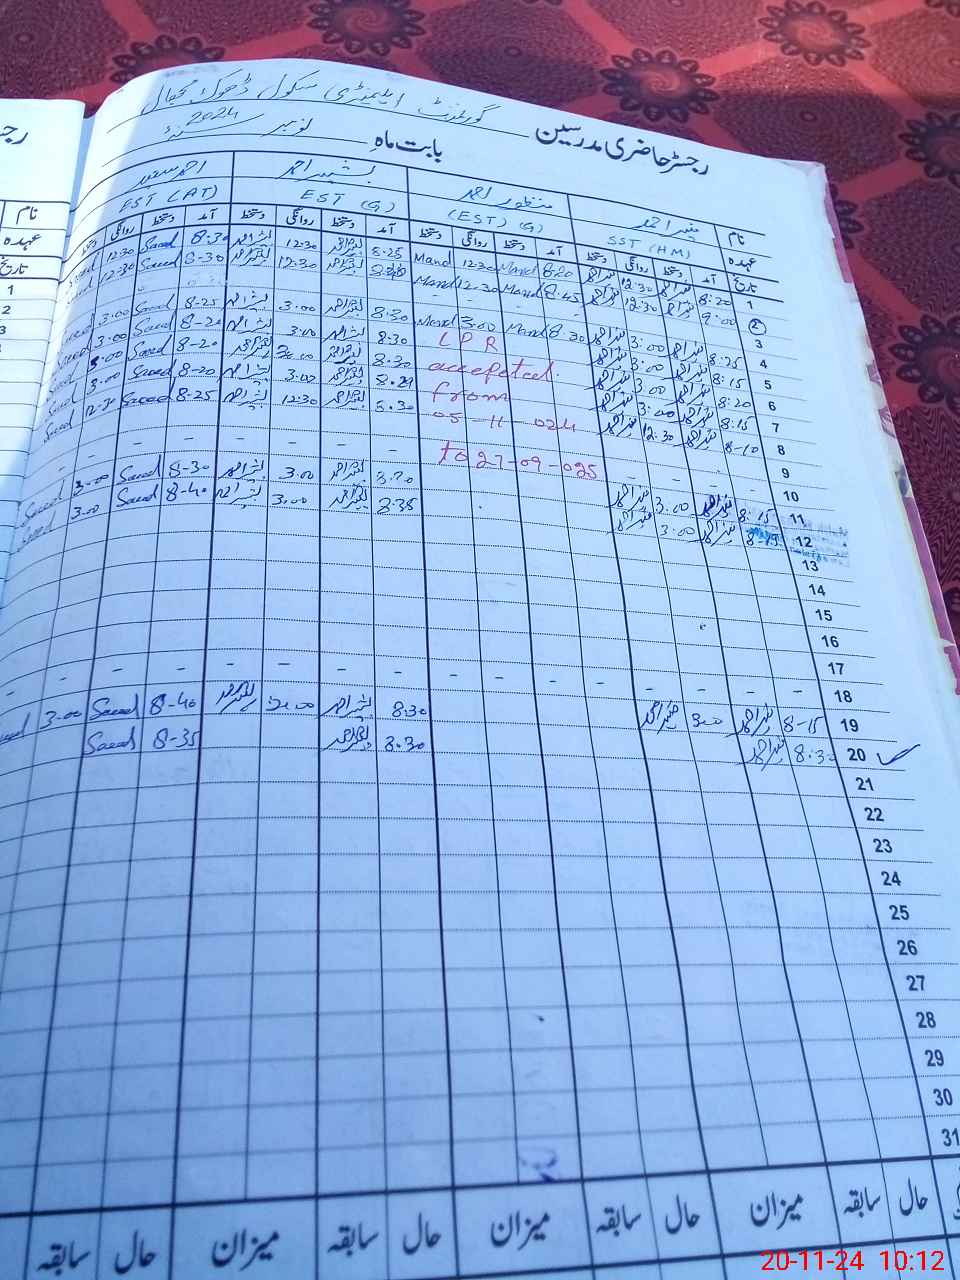 رجسٹر حاضری مدرسین گورنمنٹ ایلیمنٹری سکول ڈھوک
بابت ماہ نومبر سنہ 2024
نام منیر احمد منظور احمد بشیر احمد احمد سعید
عہدہ SST (HM) (EST) (G) EST (G) EST (AT)
تاریخ آمد دستخط روانگی دستخط آمد دستخط روانگی دستخط آمد دستخط روانگی دستخط آمد دستخط روانگی دستخط
1 8:20 منیر احمد 12:30 منیر احمد 8:20 Mand 12:30 Mand 8:25 بشیر احمد 12:30 بشیر احمد 8:30 Saeed 12:30 Saeed
2 9:00 منیر احمد 12:30 منیر احمد 8:45 Mand 12:30 Mand بشیر احمد 12:30 بشیر احمد 8-30 Saeed 12:30 Saeed
3
4 8:25 منیر احمد 3:00 منیر احمد 8:30 Mand 3:00 Mand 8:30 بشیر احمد 3:00 بشیر احمد 8-25 Saeed 3:00 Saeed
5 8:15 منیر احمد 3:00 منیر احمد LPR 8:30 بشیر احمد 3:00 بشیر احمد 8-20 Saeed 3:00 Saeed
6 8:20 منیر احمد 3:00 منیر احمد accepeted 8:30 بشیر احمد 3:00 بشیر احمد 8-20 Saeed 3:00 Saeed
7 8:15 منیر احمد 3:00 منیر احمد from 8:29 بشیر احمد 3:00 بشیر احمد 8-20 Saeed 3:00 Saeed
8 8-10 منیر احمد 12:30 منیر احمد 05-11-024 8:30 بشیر احمد 12:30 بشیر احمد 8-25 Saeed 12:30 Saeed
9 - - - - to 27-09-025 - -
10
11 8:15 منیر احمد 3:00 منیر احمد بشیر احمد 3:00 بشیر احمد 8-30 Saeed 3-00 Saeed
12 8-15 منیر احمد 3:00 منیر احمد 8:35 بشیر احمد 3:00 بشیر احمد 8-40 Saeed 3:00 Saeed
13
14
15
16
17
18 - - - - - - - - - - - - - - -
19 8-15 منیر احمد 3:00 منیر احمد 8:30 بشیر احمد 3:00 بشیر احمد 8-40 Saeed 3:00 Saeed
20 8:30 منیر احمد 8:30 بشیر احمد 8-35 Saeed
21
22
23
24
25
26
27
28
29
30
31
حال سابقہ میزان حال سابقہ میزان حال سابقہ میزان حال سابقہ
رجس
نام
عہدہ
تاریخ
1
2
3
20-11-24 10:12